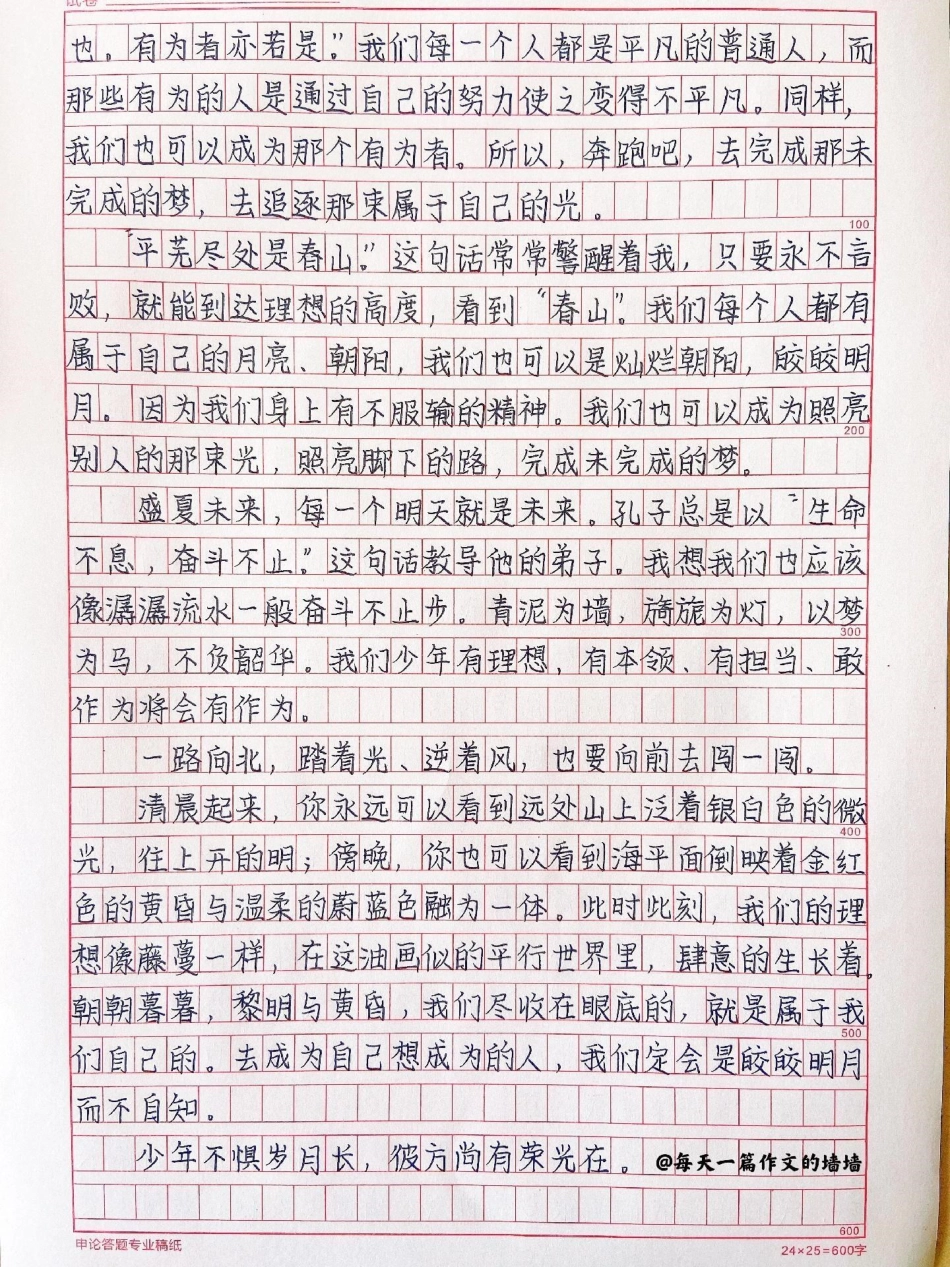 试卷
也。有为者亦若是。”我们每一个人都是平凡的普通人，而
那些有为的人是通过自己的努力使之变得不平凡。同样，
我们也可以成为那个有为者。所以，奔跑吧，去完成那未
完成的梦，去追逐那束属于自己的光。
100
“平芜尽处是春山。”这句话常常警醒着我，只要永不言
败，就能到达理想的高度，看到“春山”。我们每个人都有
属于自己的月亮、朝阳，我们也可以是灿烂朝阳，皎皎明
月。因为我们身上有不服输的精神。我们也可以成为照亮
200
别人的那束光，照亮脚下的路，完成未完成的梦。
盛夏未来，每一个明天就是未来。孔子总是以“生命
不息，奋斗不止。”这句话教导他的弟子。我想我们也应该
像潺潺流水一般奋斗不止步。青泥为墙，旖旎为灯，以梦
300
为马，不负韶华。我们少年有理想，有本领、有担当、敢
作为将会有作为。
一路向北，踏着光、逆着风，也要向前去闯一闯。
清晨起来，你永远可以看到远处山上泛着银白色的微
400
光，往上开的明；傍晚，你也可以看到海平面倒映着金红
色的黄昏与温柔的蔚蓝色融为一体。此时此刻，我们的理
想像藤蔓一样，在这油画似的平行世界里，肆意的生长着。
朝朝暮暮，黎明与黄昏，我们尽收在眼底的，就是属于我
500
们自己的。去成为自己想成为的人，我们定会是皎皎明月
而不自知。
少年不惧岁月长，彼方尚有荣光在。 @每天一篇作文的墙墙
600
申论答题专业稿纸 24×25=600字